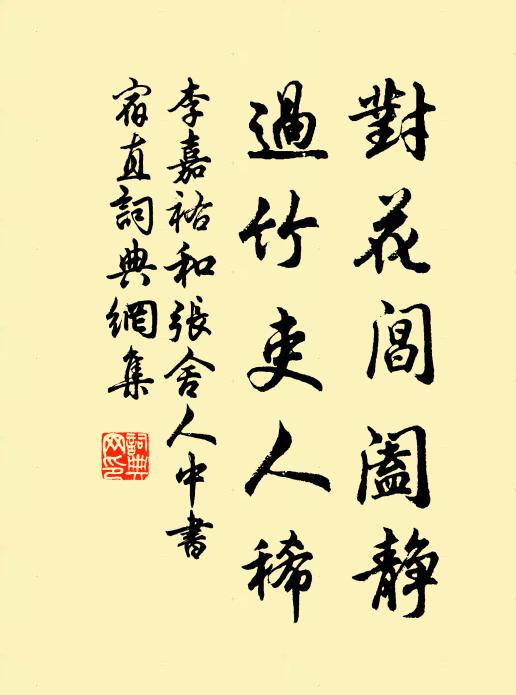 對花閶闔静
過竹吏人稀
李嘉祐和張舍人中書
宿直詞典網集
詞典
网印